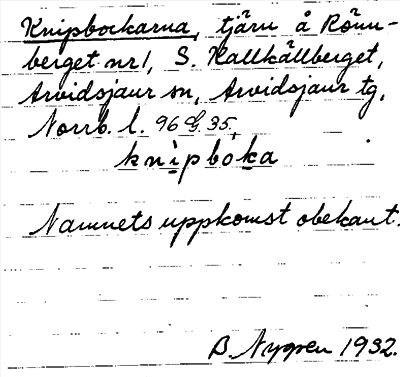 Knipbockarna, tjärn å Rönn-
berget nr 1, S. Kallkällberget,
Arvidsjaur sn, Arvidsjaur tg,
Norrb. l. 96 G. 35.
knipbóka
Namnets uppkomst obekant.
B. Nygren 1932.